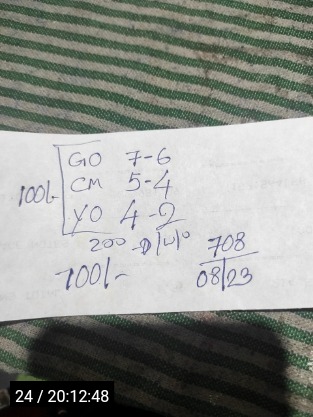 GO 7-6
100/- CM 5-4
YO 4-2
200
708
100/- 08/23
24 / 20:12:48